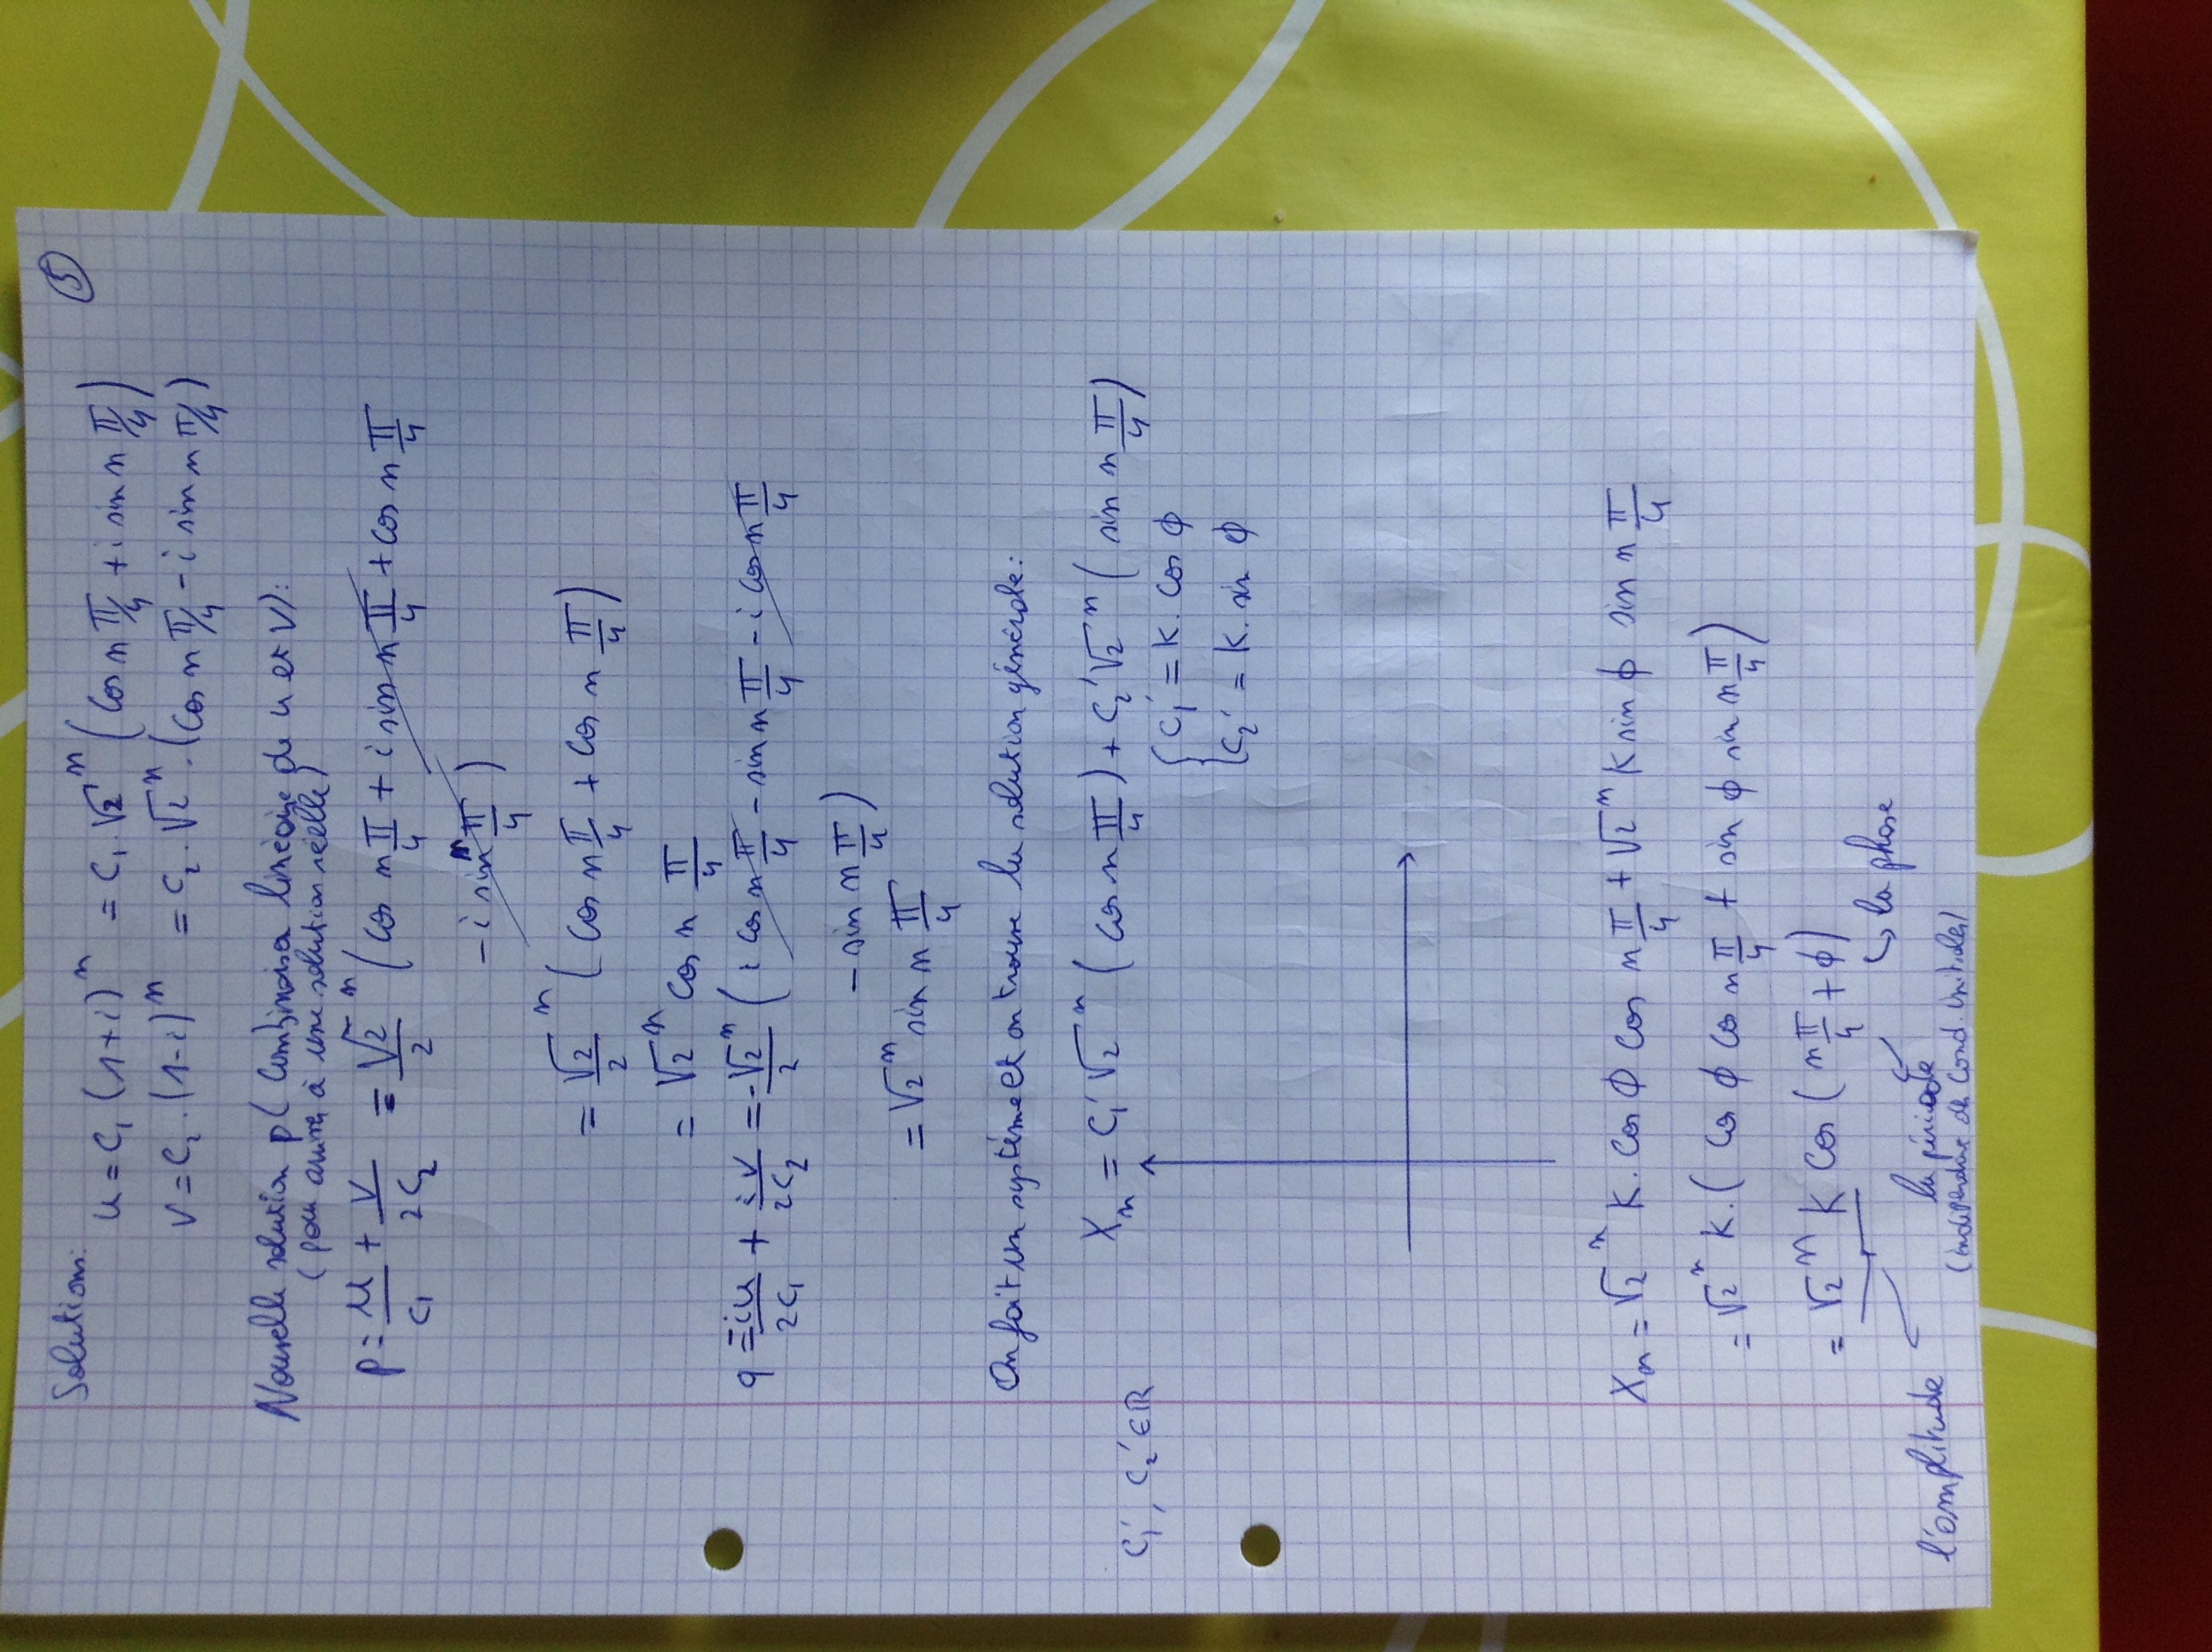 ③
Solution:
u = C₁ (1+i)ⁿ = C₁ . √2ⁿ ( cos n π/4 + i sin n π/4 )
v = C₂ . (1-i)ⁿ = C₂ . √2ⁿ . ( cos n π/4 - i sin n π/4 )
Nouvelle solution p ( combinaison linéaire de u et v ) :
( pour arriver à une solution réelle )
p = u/C₁ + v/2C₂ = √2ⁿ/2 ( cos n π/4 + i sin n π/4 + cos n π/4
- i sin n π/4 )
= √2ⁿ/2 ( cos n π/4 + cos n π/4 )
= √2ⁿ cos n π/4
q = iu/2C₁ + iv/2C₂ = -√2ⁿ/2 ( i cos n π/4 - sin n π/4 - i cos n π/4
- sin n π/4 )
= √2ⁿ sin n π/4
On fait un système et on trouve la solution générale :
Xn = C₁' √2ⁿ ( cos n π/4 ) + C₂' √2ⁿ ( sin n π/4 )
C₁', C₂' ∈ ℝ
{ C₁' = K . cos ϕ
{ C₂' = K . sin ϕ
Xn = √2ⁿ K . cos ϕ cos n π/4 + √2ⁿ K sin ϕ sin n π/4
= √2ⁿ K . ( cos ϕ cos n π/4 + sin ϕ sin n π/4 )
= √2ⁿ K cos ( n π/4 + ϕ )
la phase
l'amplitude
la période
(indépendante de cond. initiales)